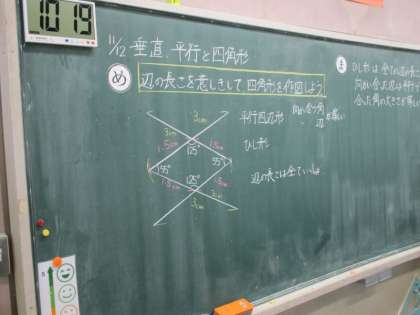 10 19
11/12 垂直、平行と四角形
め
辺の長さを意しきして四角形を作図しよう
3cm
3cm
1.5cm
1.5cm
125°
55°
55°
125°
1.5cm
1.5cm
3cm
3cm
平行四辺形
向かい合う角
辺
が等しい
ひし形
辺の長さは全ていっしょ
ま
ひし形は全ての辺の長
向かい合った辺は平行で
合った角の大きさが等し